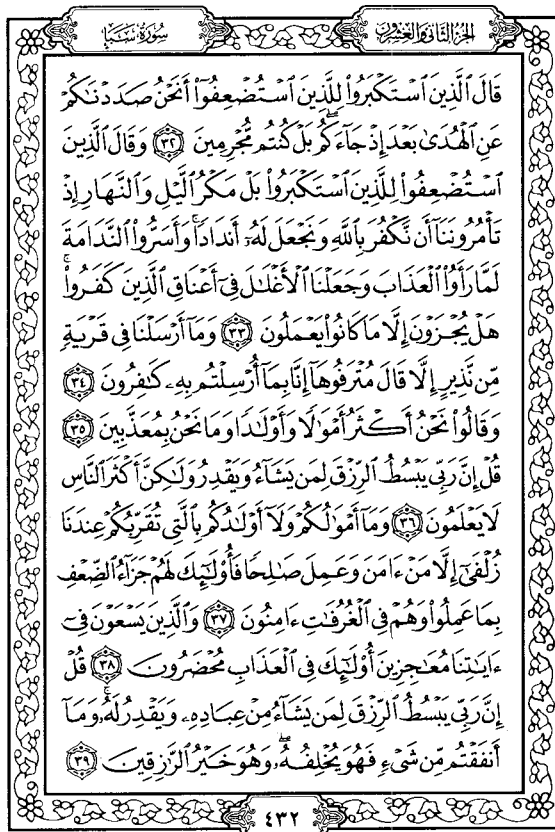 سُورَةُ سَبَإٍ
الجزء الثاني والعشرون
قَالَ ٱلَّذِينَ ٱسۡتَكۡبَرُواْ لِلَّذِينَ ٱسۡتُضۡعِفُوٓاْ أَنَحۡنُ صَدَدۡنَٰكُمۡ
عَنِ ٱلۡهُدَىٰ بَعۡدَ إِذۡ جَآءَكُمۖ بَلۡ كُنتُم مُّجۡرِمِينَ ٣٢ وَقَالَ ٱلَّذِينَ
ٱسۡتُضۡعِفُواْ لِلَّذِينَ ٱسۡتَكۡبَرُواْ بَلۡ مَكۡرُ ٱلَّيۡلِ وَٱلنَّهَارِ إِذۡ
تَأۡمُرُونَنَآ أَن نَّكۡفُرَ بِٱللَّهِ وَنَجۡعَلَ لَهُۥٓ أَندَادٗاۚ وَأَسَرُّواْ ٱلنَّدَامَةَ
لَمَّا رَأَوُاْ ٱلۡعَذَابَۚ وَجَعَلۡنَا ٱلۡأَغۡلَٰلَ فِيٓ أَعۡنَاقِ ٱلَّذِينَ كَفَرُواْۖ
هَلۡ يُجۡزَوۡنَ إِلَّا مَا كَانُواْ يَعۡمَلُونَ ٣٣ وَمَآ أَرۡسَلۡنَا فِي قَرۡيَةٖ
مِّن نَّذِيرٍ إِلَّا قَالَ مُتۡرَفُوهَآ إِنَّا بِمَآ أُرۡسِلۡتُم بِهِۦ كَٰفِرُونَ ٣٤
وَقَالُواْ نَحۡنُ أَكۡثَرُ أَمۡوَٰلٗا وَأَوۡلَٰدٗا وَمَا نَحۡنُ بِمُعَذَّبِينَ ٣٥
قُلۡ إِنَّ رَبِّي يَبۡسُطُ ٱلرِّزۡقَ لِمَن يَشَآءُ وَيَقۡدِرُ وَلَٰكِنَّ أَكۡثَرَ ٱلنَّاسِ
لَا يَعۡلَمُونَ ٣٦ وَمَآ أَمۡوَٰلُكُمۡ وَلَآ أَوۡلَٰدُكُم بِٱلَّتِي تُقَرِّبُكُمۡ عِندَنَا
زُلۡفَىٰٓ إِلَّا مَنۡ ءَامَنَ وَعَمِلَ صَٰلِحٗا فَأُوْلَٰٓئِكَ لَهُمۡ جَزَآءُ ٱلضِّعۡفِ
بِمَا عَمِلُواْ وَهُمۡ فِي ٱلۡغُرُفَٰتِ ءَامِنُونَ ٣٧ وَٱلَّذِينَ يَسۡعَوۡنَ فِيٓ
ءَايَٰتِنَا مُعَٰجِزِينَ أُوْلَٰٓئِكَ فِي ٱلۡعَذَابِ مُحۡضَرُونَ ٣٨ قُلۡ
إِنَّ رَبِّي يَبۡسُطُ ٱلرِّزۡقَ لِمَن يَشَآءُ مِنۡ عِبَادِهِۦ وَيَقۡدِرُ لَهُۥۚ وَمَآ
أَنفَقۡتُم مِّن شَيۡءٖ فَهُوَ يُخۡلِفُهُۥۖ وَهُوَ خَيۡرُ ٱلرَّٰزِقِينَ ٣٩
٤٣٢